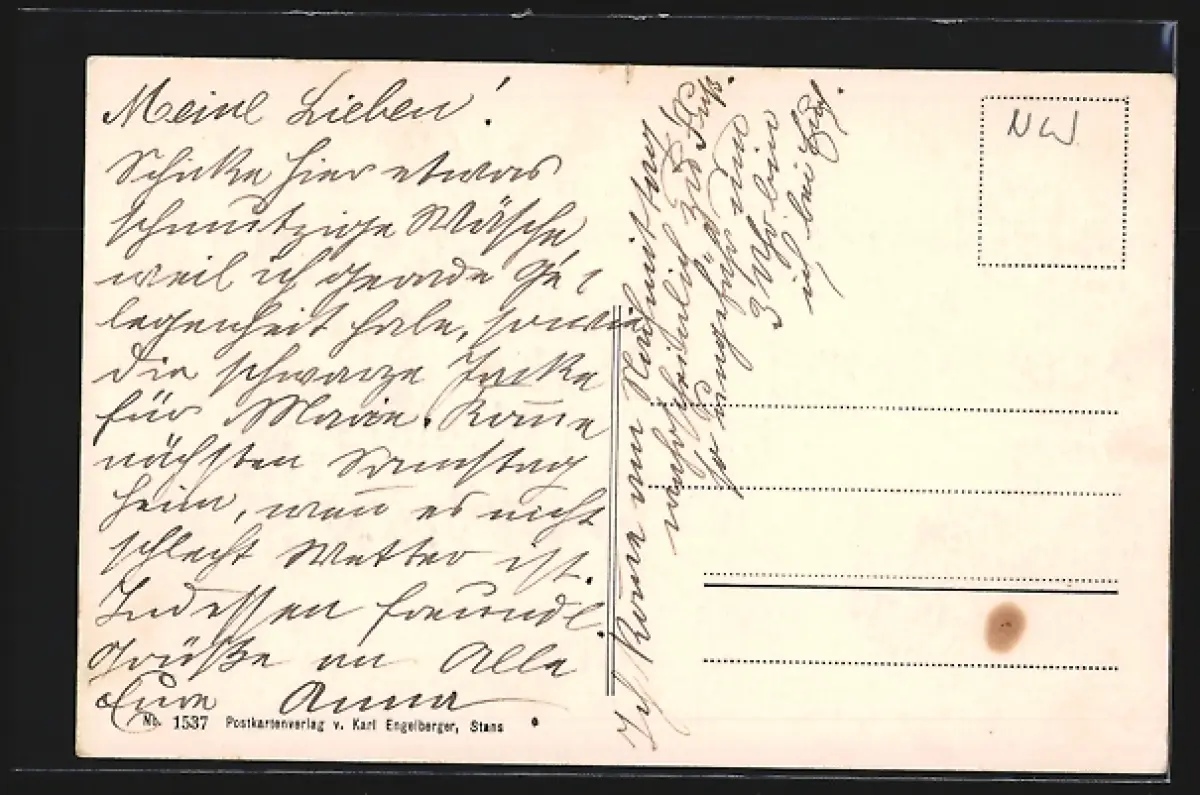 Meine Lieben!
Schicke hier etwas
schmutzige Wäsche
weil ich gerade Ge-
legenheit habe, sowie
die schwarze Jacke
für Marie. Kome
nächsten Samstag
heim, wen es nicht
schlecht Wetter ist.
Indessen freundl.
Grüße an Alle
Eure Anna
Ich kome am Nachmittag
wahrscheinlich zu Fuß.
So ungefähr um
3 Uhr bin
ich bei
NW
No. 1537 Postkartenverlag v. Karl Engelberger, Stans